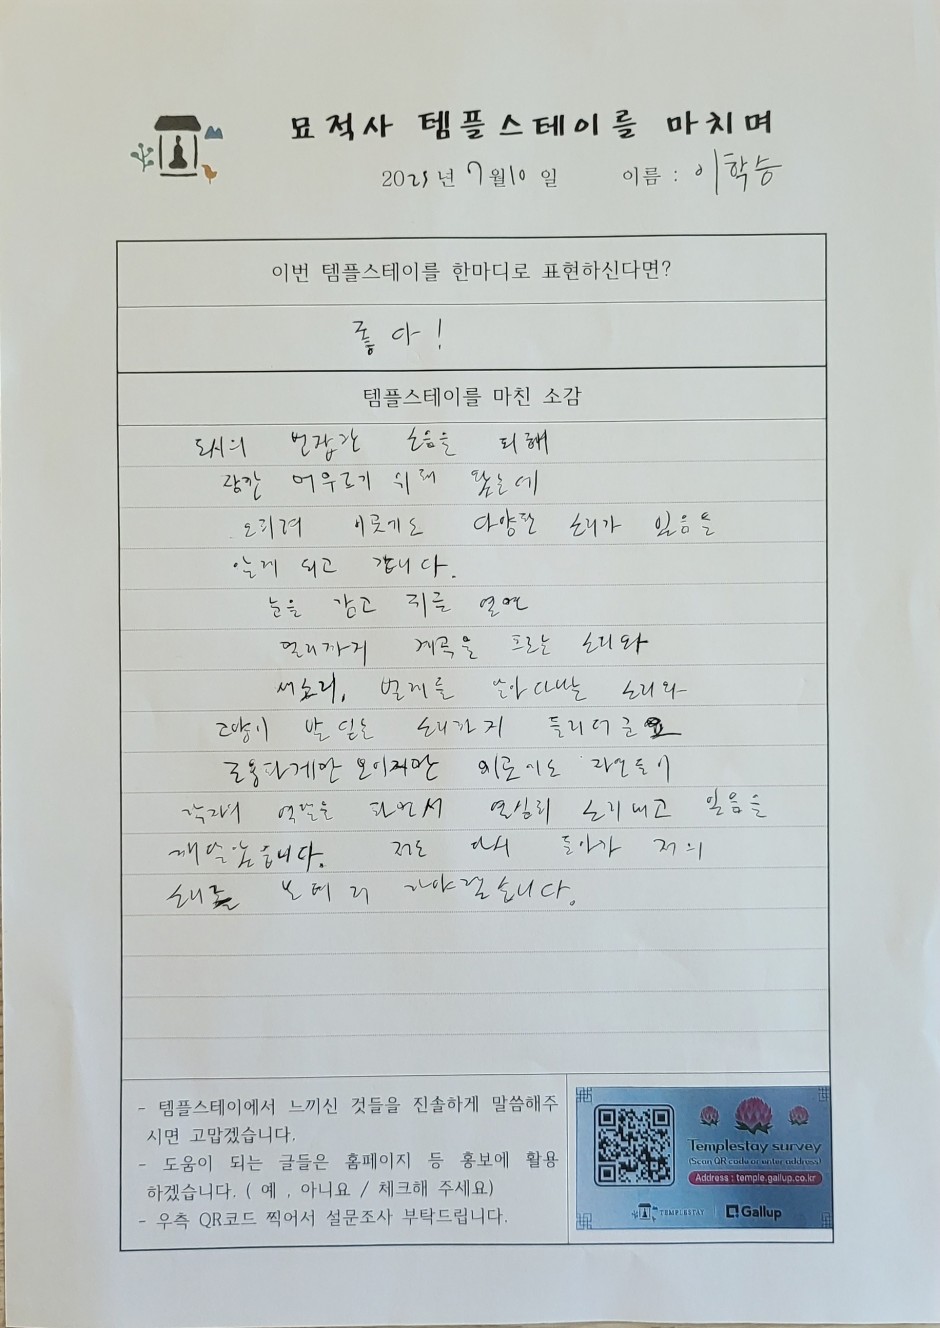 묘적사 템플스테이를 마치며
2025년 7월10일 이름 : 이학승
이번 템플스테이를 한마디로 표현하신다면?
좋다!
템플스테이를 마친 소감
도시의 번잡한 소음을 피해
잠깐 머무르기 위해 왔는데
오히려 이곳에도 다양한 소리가 있음을
알게 되고 갑니다.
눈을 감고 귀를 열면
멀리까지 계곡을 흐르는 소리와
새소리, 벌레들 날아다니는 소리와
고양이 발 딛는 소리까지 들리더군요
조용하게만 보이지만 외로이도 자연들이
각자의 역할을 하면서 열심히 소리내고 있음을
깨달았습니다. 저도 다시 돌아가 저의
소리를 보태러 가야겠습니다.
- 템플스테이에서 느끼신 것들을 진솔하게 말씀해주
시면 고맙겠습니다.
- 도움이 되는 글들은 홈페이지 등 홍보에 활용
하겠습니다. ( 예 , 아니요 / 체크해 주세요)
- 우측 QR코드 찍어서 설문조사 부탁드립니다.
Templestay survey
(Scan QR code or enter address)
Address : temple.gallup.co.kr
TEMPLESTAY Gallup